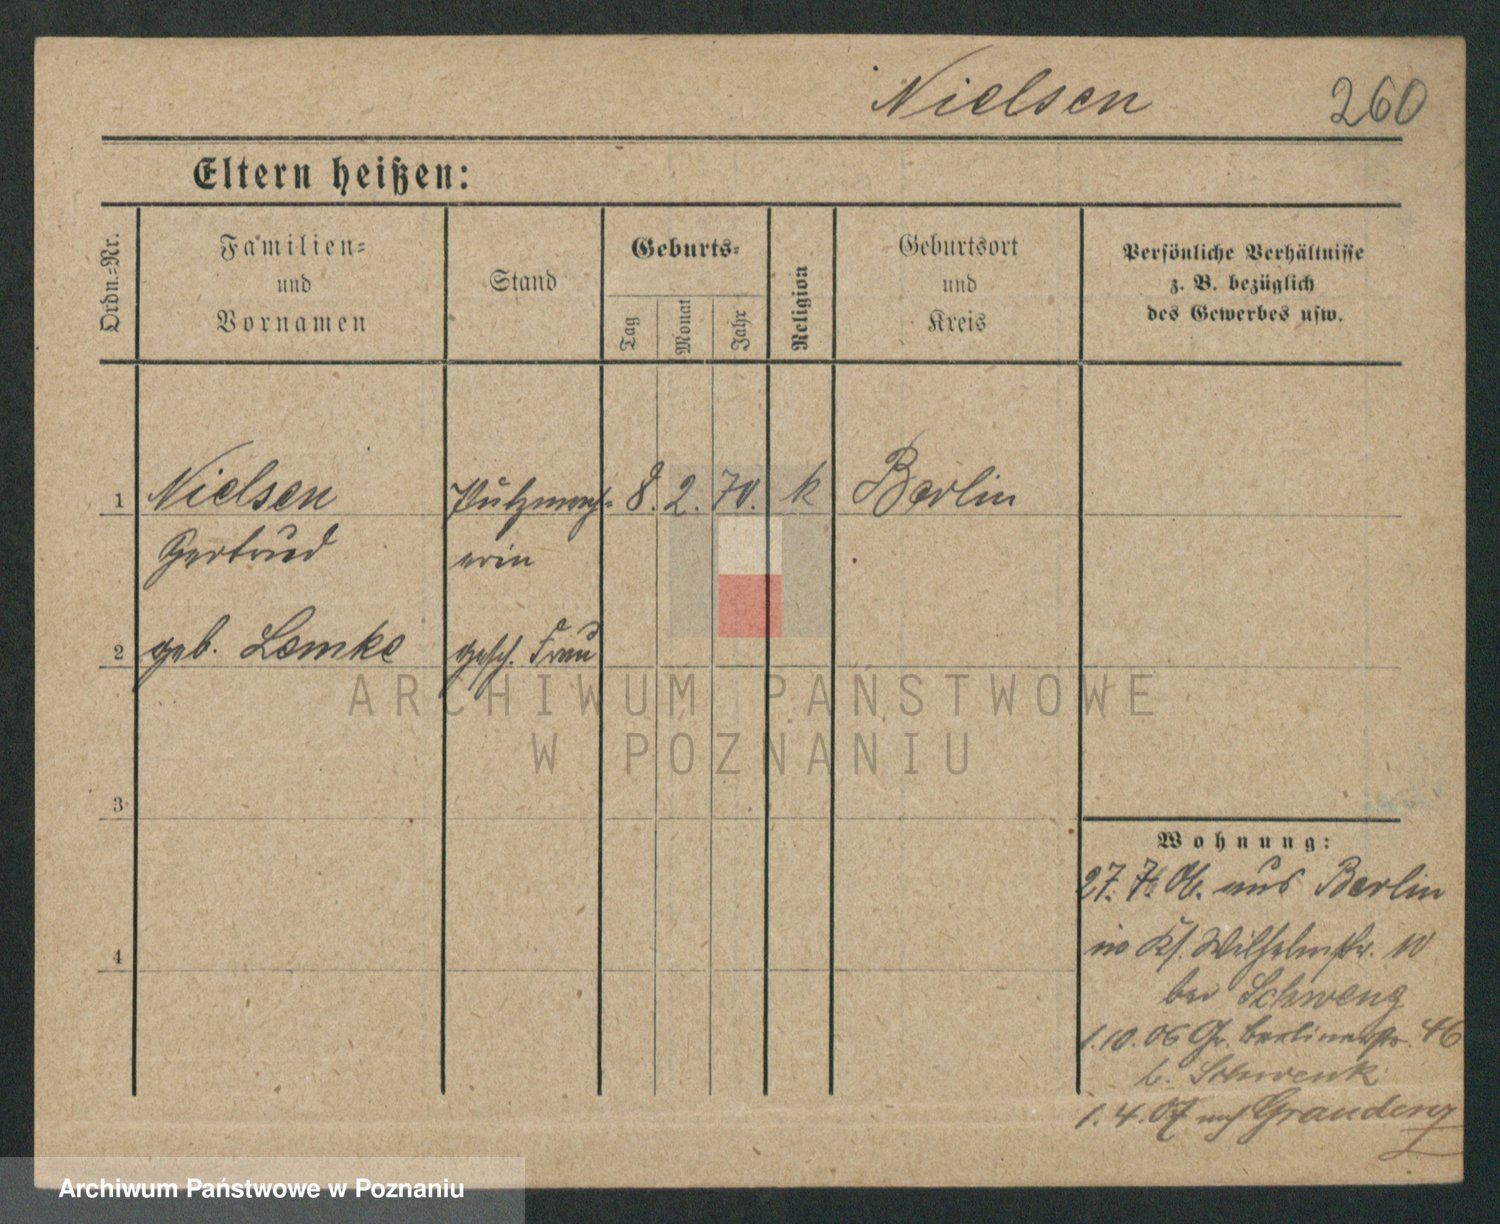 Nielsen 260
Eltern heißen:
Ordn.-Nr.
Familien-
und
Vornamen
Stand
Geburts-
Tag
Monat
Jahr
Religion
Geburtsort
und
Kreis
Persönliche Verhältnisse
z. B. bezüglich
des Gewerbes usw.
1 Nielsen Putzmach- 8. 2. 70. k Berlin
Gertrud erin
2 geb. Lemke gesch. Frau
ARCHIWUM PAŃSTWOWE
W POZNANIU
3
Wohnung:
27. 7. 06. aus Berlin
in Kl. Wilhelmstr. 10
4
bei Schweng
1.10.06 Gr. Berlinerstr. 46
b. Schwenk
1.4.07 nach Graudenz
Archiwum Państwowe w Poznaniu